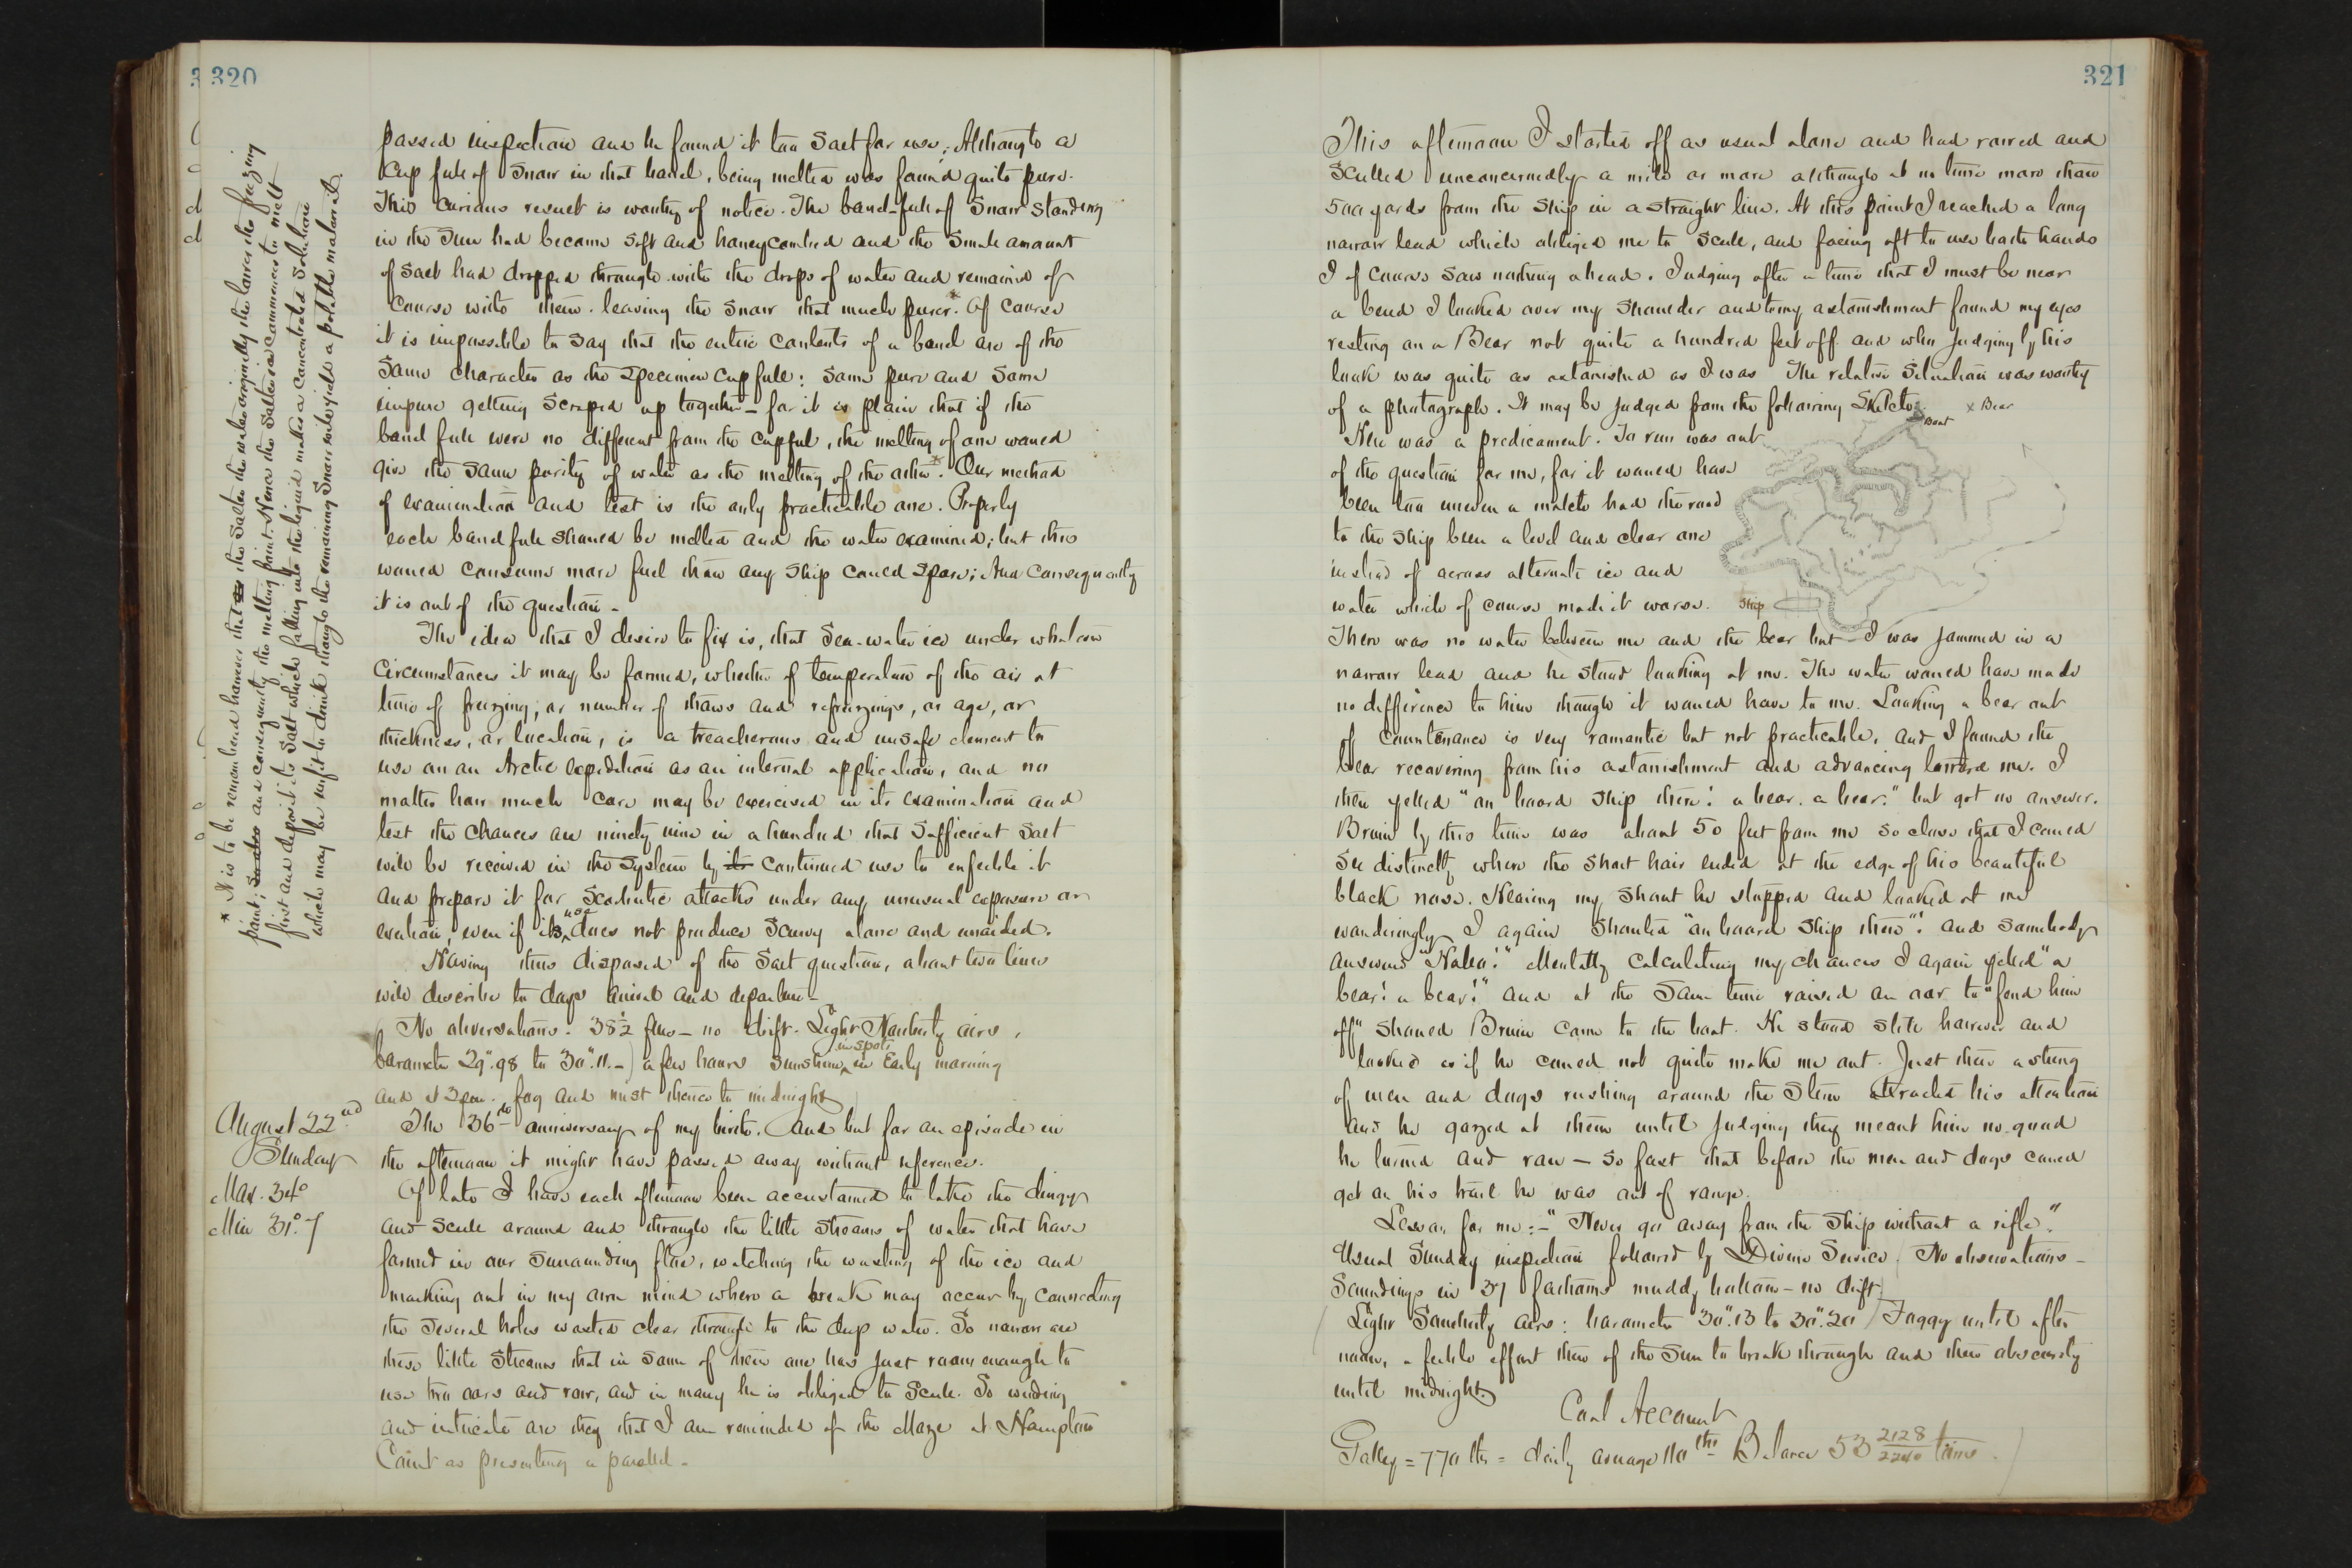 320
passed inspection and he found it too salt for use; Although a
cup full of snow in that barrel, being melted was found quite pure.
This curious result is worthy of notice. The barrel-full of snow standing
in the sun had become soft and honeycombed and the small amount
of salt had dropped through with the drops of water and remained of
course with them, leaving the snow that much purer.* Of course
it is impossible to say that the entire contents of a barrel are of the
same character as the specimen cup full: some pure and some
impure getting scraped up together – for it is plain that if the
barrel full were no different from the cupful, the melting of one would
give the same purity of water as the melting of the other.* Our method
of examination and test is the only practicable one. Properly
each barrel full should be melted and the water examined; but this
would consume more fuel than any ship could spare; And consequently
it is out of the question –
The idea that I desire to fix is, that sea-water ice under whatever
circumstances it may be formed, whether of temperature of the air at
time of freezing, or number of thaws and refreezings, or age, or
thickness, or location, is a treacherous and unsafe element to
use on an Arctic expedition as an internal application, and no
matter how much care may be exercised in its examination and
test the chances are ninety nine in a hundred that sufficient salt
will be received in the system by its continued use to enfeeble it
and prepare it for scorbutic attacks under any unusual exposure or
exertion, even if its use does not produce scurvy alone and unaided.
Having thus disposed of the salt question, about two lines
will describe to days arrival and departure –
No observations. 38½ fms – no drift. Light Northerly airs,
barometer 29".98 to 30".11. –) a few hours sunshine in spots in Early morning
and at 2 p.m. fog and mist thence to midnight
August 22nd
Sunday
Max. 34°
Min 31°.7
The 36th anniversary of my birth. And but for an episode in
the afternoon it might have passed away without reference.
Of late I have each afternoon been accustomed to take the dingy
and scull around and through the little streams of water that have
formed in our surrounding floe, watching the wasting of the ice and
marking out in my own mind where a break may occur by connecting
the several holes wasted clear through to the deep water. So narrow are
these little streams that in some of them one has just room enough to
use two oars and row, and in many he is obliged to scull. So winding
and intricate are they that I am reminded of the Maze at Hampton
Court as presenting a parallel –
* It is to be remembered however that the salter the water originally the lower the freezing
point; and consequently the melting point. Hence the salter ice commences to melt
first and deposit its salt which falling into the liquid makes a concentrated solution
which may be unfit to drink though the remaining snow will yield a potable material.
321
This afternoon I started off as usual alone and had rowed and
sculled unconcernedly a mile or more although at no time more than
500 yards from the ship in a straight line. At this point I reached a long
narrow lead which obliged me to scull, and facing aft to use both hands
I of course saw nothing ahead. Judging after a time that I must be near
a bend I looked over my shoulder and to my astonishment found my eyes
resting on a Bear not quite a hundred feet off and who judging by his
look was quite as astonished as I was The relative situation was worthy
of a photograph. It may be judged from the following Sketch
x Bear
Boat
Here was a predicament. To run was out
of the question for me, for it would have
been too uneven a match had the road
to the ship been a level and clear one
instead of across alternate ice and
water which of course made it worse.
Ship
There was no water between me and the bear but I was jammed in a
narrow lead and he stood looking at me. The water would have made
no difference to him though it would have to me. Looking a bear out
of countenance is very romantic but not practicable, and I found the
bear recovering from his astonishment and advancing toward me. I
then yelled "on board ship there! a bear. a bear." but got no answer.
Bruin by this time was about 50 feet from me so close that I could
see distinctly where the short hair ended at the edge of his beautiful
black nose. Hearing my shout he stopped and looked at me
wonderingly I again shouted "on board ship there"! and somebody
answered "Halloo!" Mentally calculating my chances I again yelled "a
bear! a bear!" and at the same time raised an oar to "fend him
off" should Bruin come to the boat. He stood still however and
looked as if he could not quite make me out. Just then a string
of men and dogs rushing around the stern attracted his attention
and he gazed at them until judging they meant him no good
he turned and ran – so fast that before the men and dogs could
get on his trail he was out of range.
Lesson for me: – "Never go away from the ship without a rifle".
Usual Sunday inspection followed by Divine Service. No observations –
Soundings in 37 fathoms muddy bottom – no drift
Light Southerly airs: barometer 30".13 to 30".20 Foggy until after
noon, a feeble effort then of the sun to break through and then obscurity
until midnight.
Coal Account
Galley = 770 lbs = daily average 110 lbs Balance 53 2128/2240 tons.